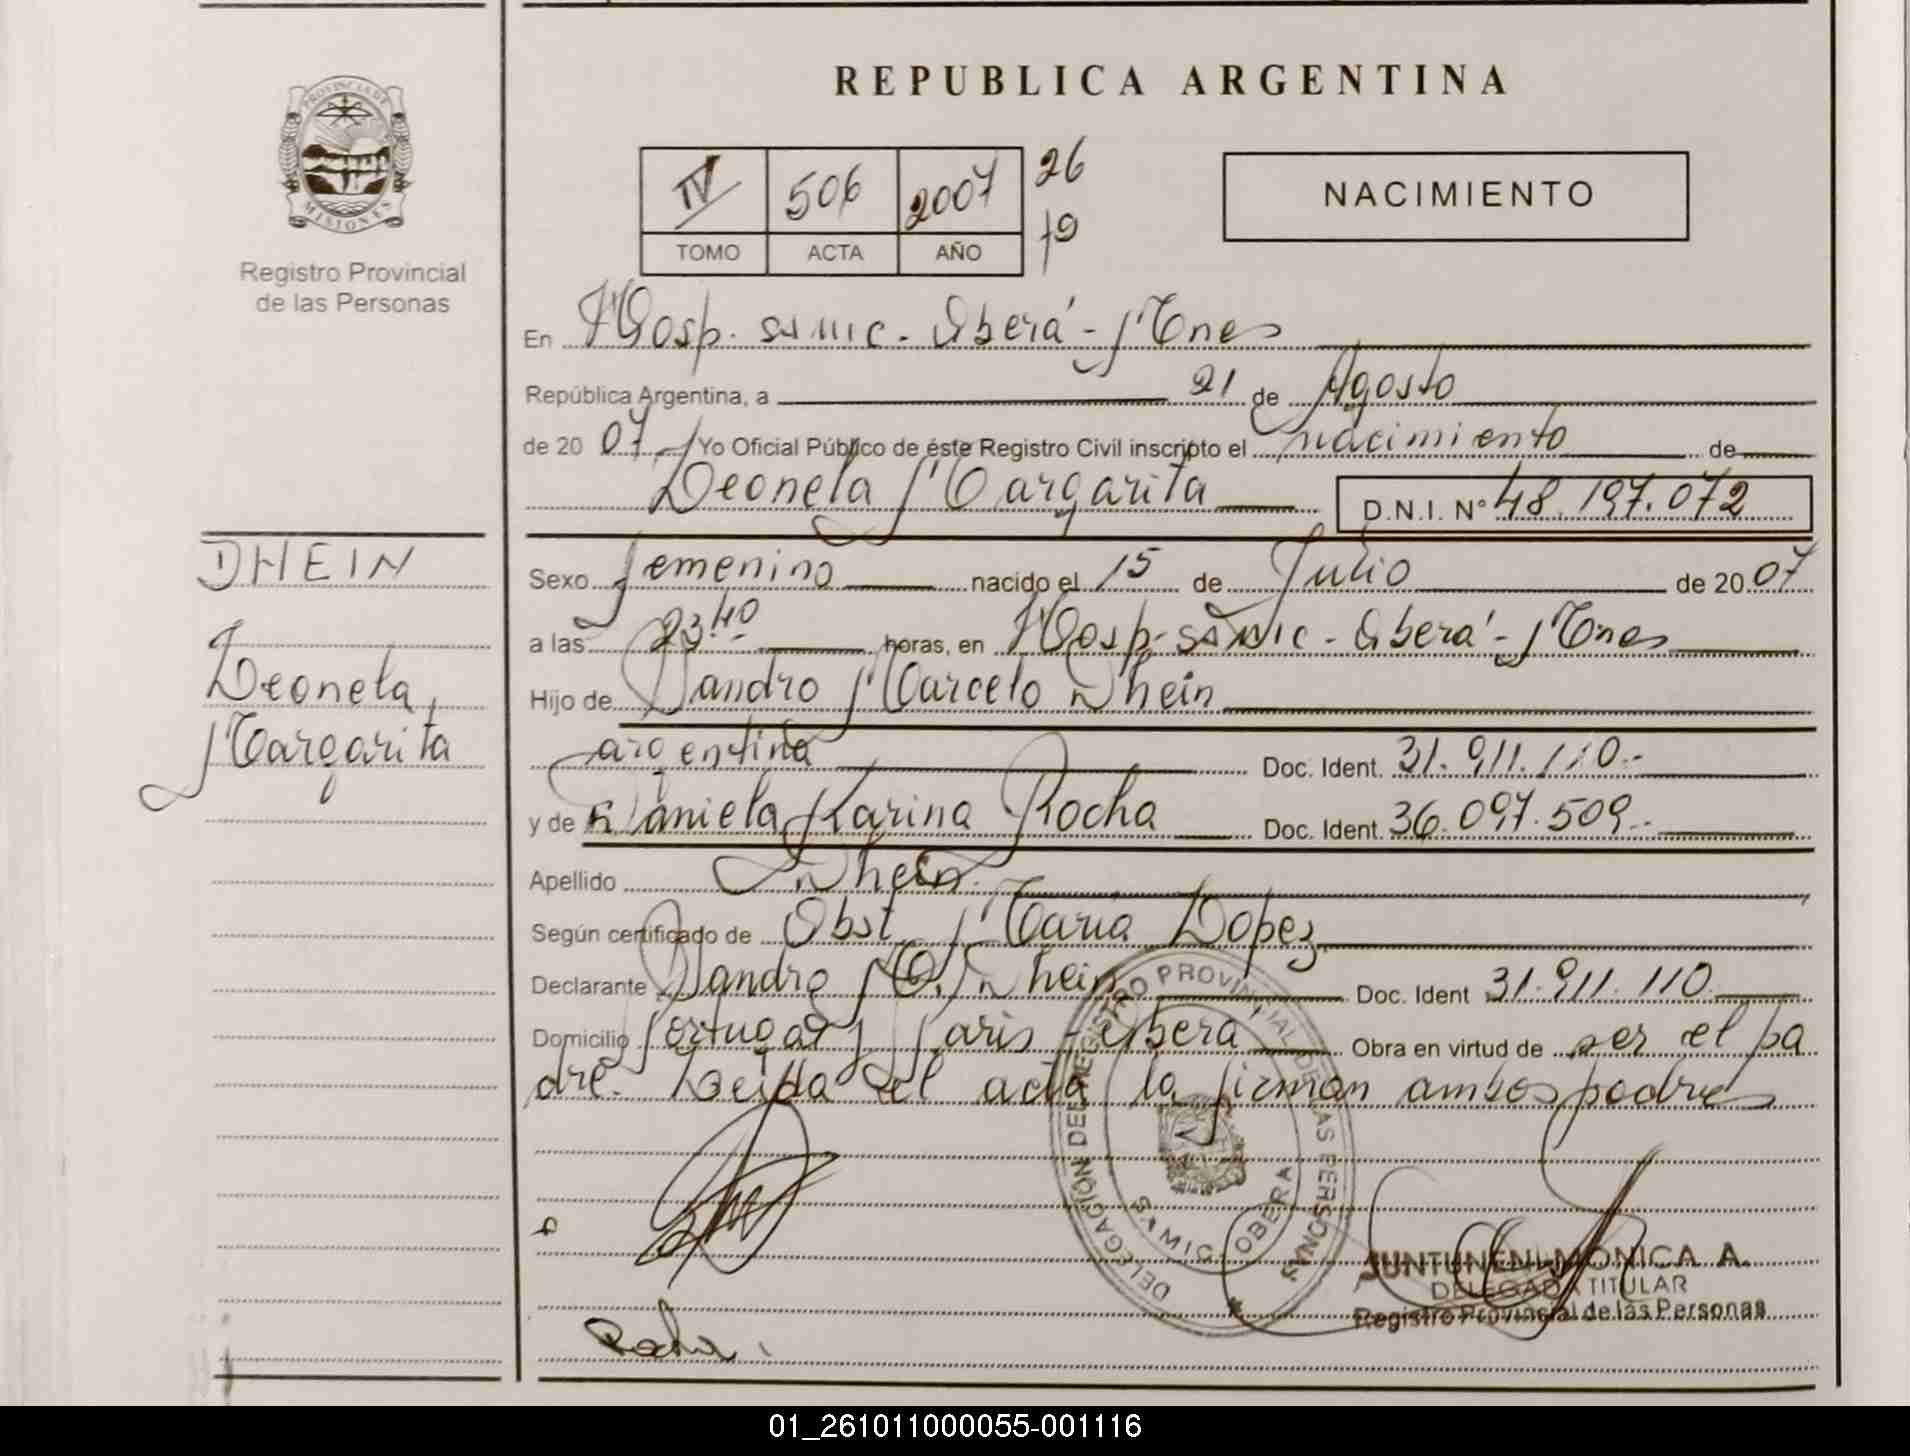 PROVINCIA DE
MISIONES
Registro Provincial
de las Personas
DHEIN
Leonela
Margarita
REPUBLICA ARGENTINA
IV 506 2007 26
TOMO ACTA AÑO 19
NACIMIENTO
En Hosp. SAMIC. Oberá - Mnes
República Argentina, a 21 de Agosto
de 2007 Yo Oficial Público de éste Registro Civil inscripto el nacimiento de
Leonela Margarita D.N.I. Nº 48.197.072
Sexo femenino nacido el 15 de Julio de 2007
a las 23.40 horas, en Hosp. SAMIC - Oberá - Mnes
Hijo de Sandro Marcelo Dhein
argentina Doc. Ident. 31.911.110.-
y de Daniela Karina Rocha Doc. Ident. 36.097.509.-
Apellido Dhein.
Según certificado de Obst. María Lopez
Declarante Sandro M. Dhein Doc. Ident 31.911.110
Domicilio Portugal y Paris - Oberá Obra en virtud de ser el pa
dre. Leida el acta la firman ambos padres
DELEGACIÓN DEL REGISTRO PROVINCIAL DE LAS PERSONAS
SAMIC - OBERA
JUNTUNEN MONICA A.
DELEGADA TITULAR
Registro Provincial de las Personas
Rocha
01_261011000055-001116